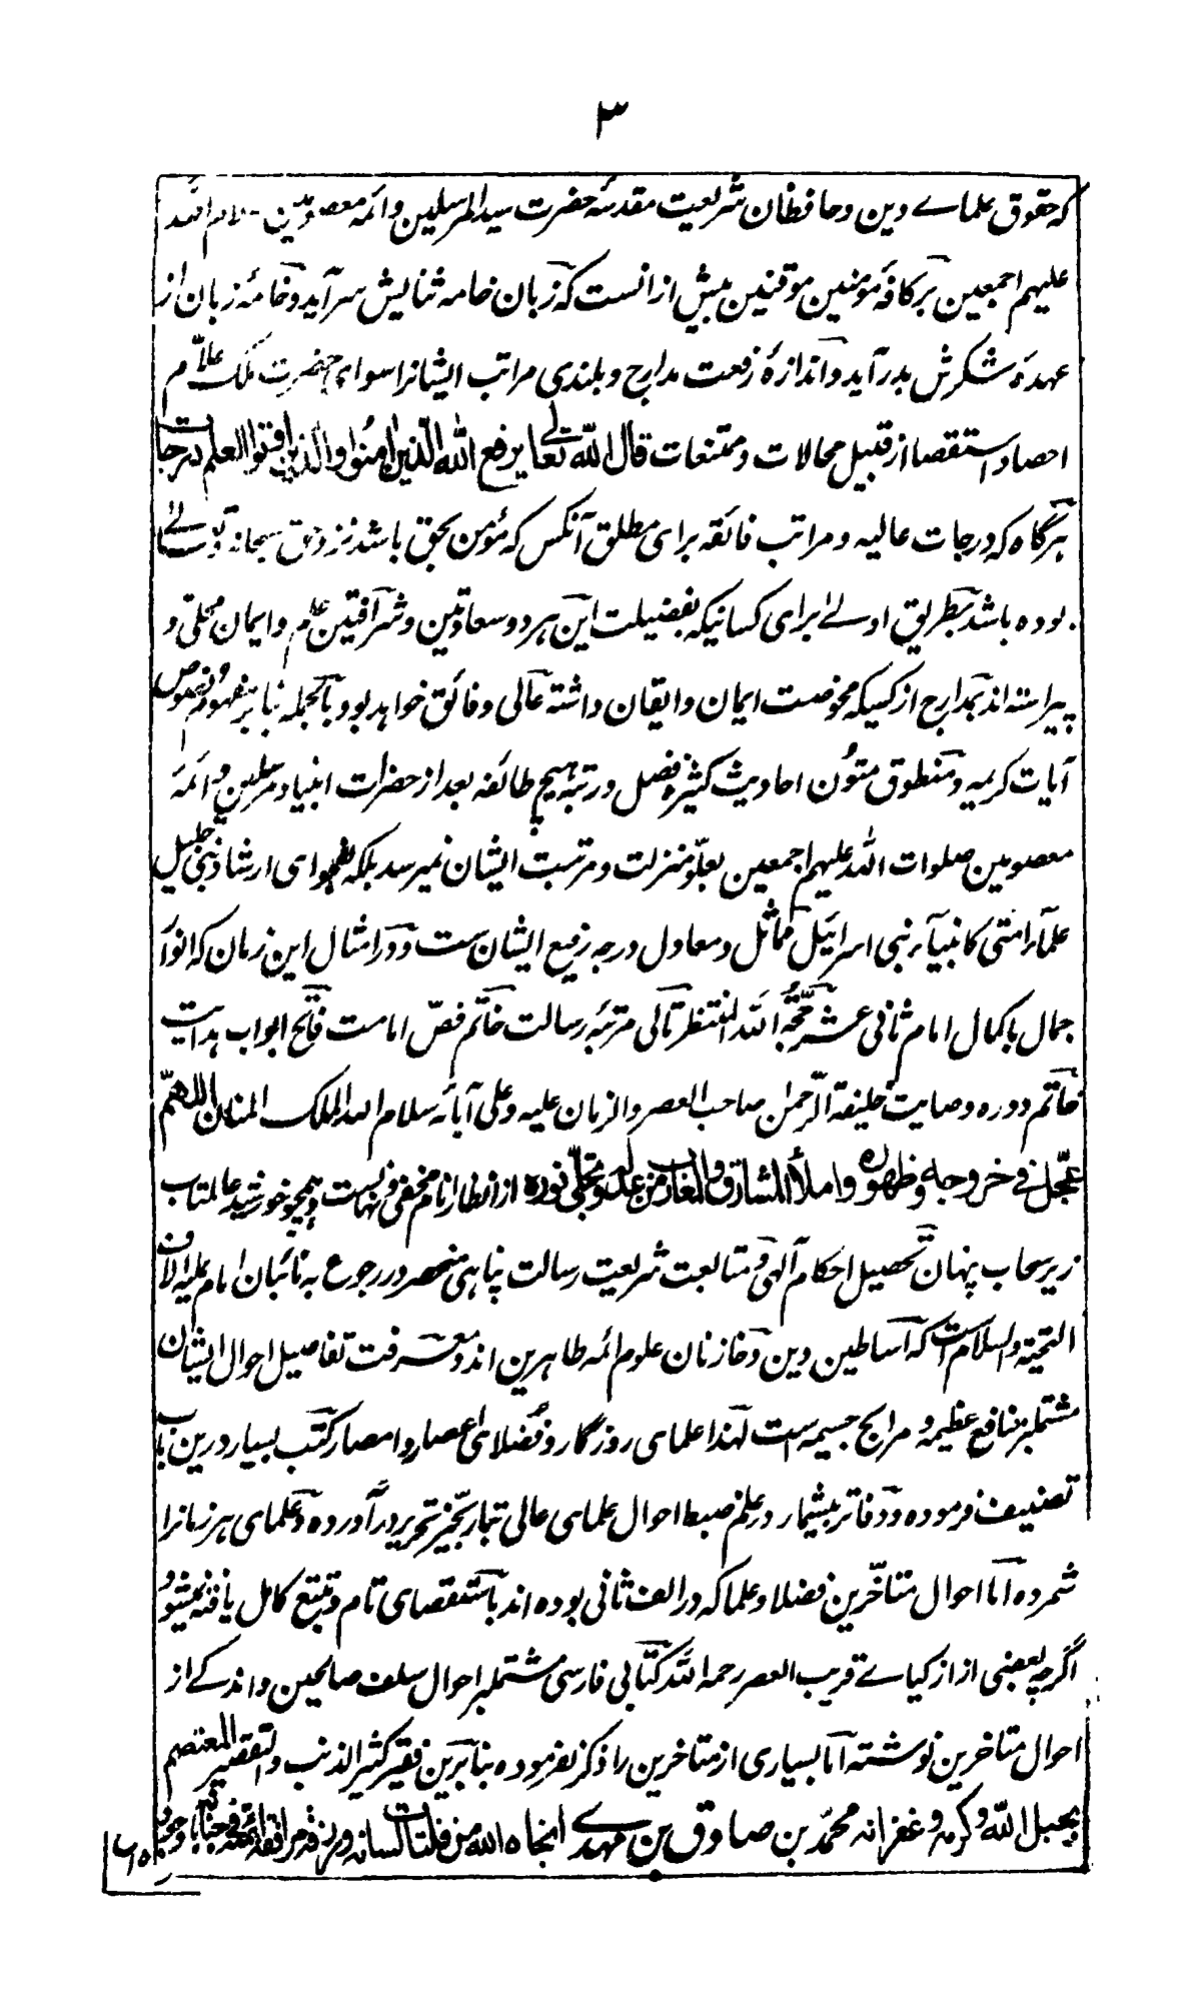 ۳
که حقوق علماے دین و حافظان شریعت مقدسه حضرت سید المرسلین و ائمه معصومین سلام الله
علیهم اجمعین بر کافهٔ مؤمنین موقنین بیش ازانست که زبان خامه ثنایش سرآید و خامهٔ زبان از
عهدهٔ شکرش بدر آید و اندازهٔ رفعت مدارج و بلندی مراتب ایشانرا سوای حضرت ملک علّام
احصا و استقصا از قبیل محالات و ممتنعات قال الله تعالے یرفع الله الذین امنوا والذین اوتوا العلم درجات
هرگاه که درجات عالیه و مراتب فائقه برای مطلق آنکس که مؤمن بحق باشد نزد حق سبحانه و تعالےٰ
بوده باشد بطریق اولےٰ برای کسانیکه بفضیلت این هر دو سعادتین و شرافتین علم و ایمان محلّی و
پیراسته اند بمدارج از کسیکه محوضت ایمان و ایقان داشته عالی و فائق خواهد بود بالجمله بنا بر مفهوم نصوص
آیات کریمه و منطوق متون احادیث کثیره فضل و رتبه هیچ طائفه بعد از حضرات انبیا و مرسلین و ائمهٔ
معصومین صلوات الله علیهم اجمعین بعلوّ منزلت و مرتبت ایشان نمیرسد بلکه بفحوای ارشاد نبی جلیل
علمآء امتی کانبیآء بنی اسرائیل مماثل و معادل درجه رفیع ایشان ست و در امثال این زمان که انوار
جمال باکمال امام ثانی عشر حجّة الله المنتظر تالی مرتبهٔ رسالت خاتم فصّ امامت فاتح ابواب هدایت
خاتم دوره وصایت خلیفة الرّحمن صاحب العصر والزمان علیه وعلی آبائه سلام الله الملک المنان اللهمّ
عجّل فی خروجه وظهوره واملأ المشارق والمغارب من عدله وتجلّی نوره از انظار انام مخفی و نهانست و همچو خورشید عالمتاب
زیر سحاب پنهان تحصیل احکام آلهی و متابعت شریعت رسالت پناهی منحصر در رجوع به نائبان امام علیه آلاف
التحیة والسلام است که اساطین دین و خازنان علوم ائمه طاهرین اند و معرفت تفاصیل احوال ایشان
مشتمل بر منافع عظیمه و مرابح جسیمه است لهذا علمای روزگار و فضلای اعصار و امصار کتب بسیار درین باب
تصنیف فرموده و دفاتر بیشمار در علم ضبط احوال علمای عالی تبار بحیّز تحریر درآورده و علمای هر زمانرا
شمرده اما احوال متأخّرین فضلا و علما که در الف ثانی بوده اند باستقصای تام و تتبع کامل یافته نمیشود
اگرچه بعضی از ازکیاے قریب العصر رحمه الله کتابی فارسی مشتمل بر احوال سلف صالحین و اندکے از
احوال متاخرین نوشته اما بسیاری از متاخرین را ذکر نفرموده بنابرین فقیر کثیر الذنب والتقصیر المعتصم
بحبل الله وکرمه وغفرانه محمد بن صادق بن مهدے انجاه الله من فلتات لسانه ورزقه مرافقة ائمته فی جنانه باوجود